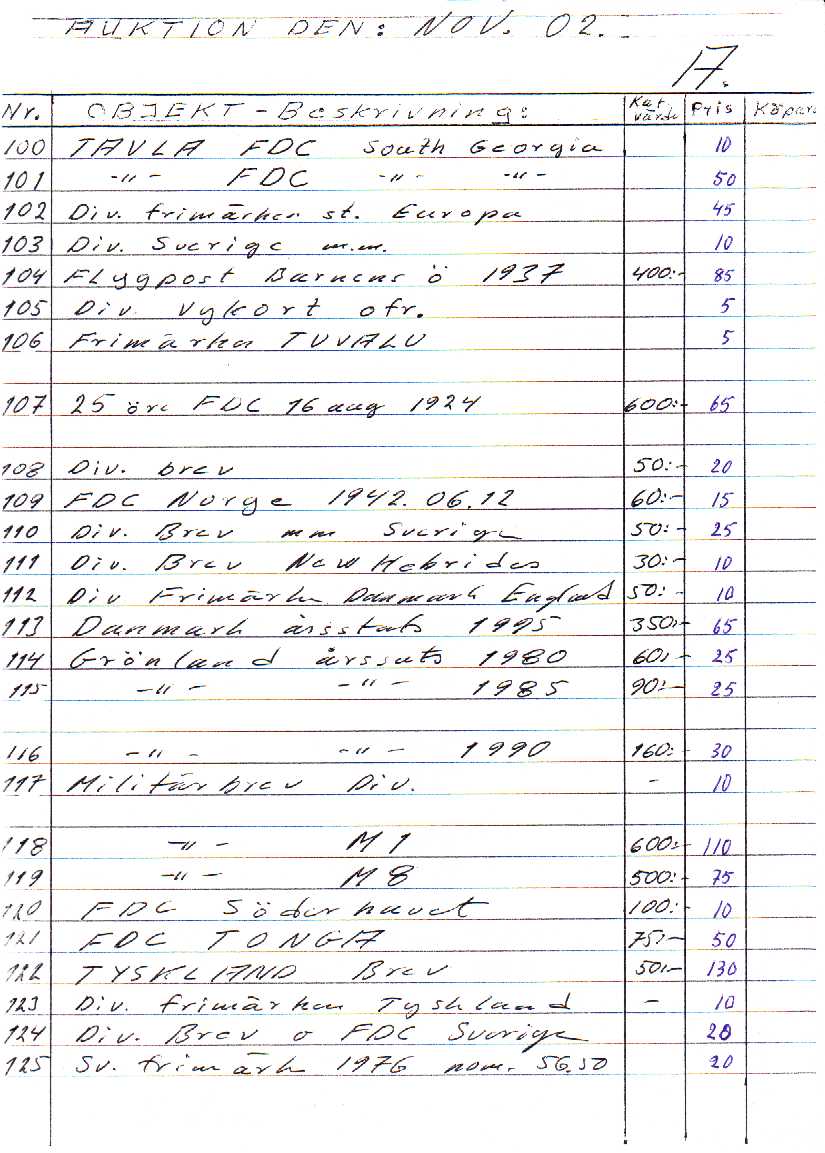 AUKTION DEN: NOV. 02.
17.
Nr. OBJEKT-Beskrivning: Kat värde Pris Köpare
100 TAVLA FDC South Georgia 10
101 -"- FDC -"- -"- 50
102 Div. frimärken st. Europa 45
103 Div. Sverige m.m. 10
104 Flygpost Barnens ö 1937 400:- 85
105 Div. Vykort ofr. 5
106 Frimärken TUVALU 5
107 25 öre FDC 16 aug 1924 600:- 65
108 Div. brev 50:- 20
109 FDC Norge 1942.06.12 60:- 15
110 Div. Brev mm Sverige 50:- 25
111 Div. Brev New Hebrides 30:- 10
112 Div Frimärken Danmark England 50:- 10
113 Danmark årssats 1995 350:- 65
114 Grönland årssats 1980 60:- 25
115 -"- -"- 1985 90:- 25
116 -"- -"- 1990 160:- 30
117 Militärbrev Div. - 10
118 -"- M1 600:- 110
119 -"- M8 500:- 75
120 FDC Söderhavet 100:- 10
121 FDC TONGA 75:- 50
122 TYSKLAND Brev 50:- 130
123 Div. frimärken Tyskland - 10
124 Div. Brev o FDC Sverige 20
125 Sv. frimärk 1976 nom. 56.50 20